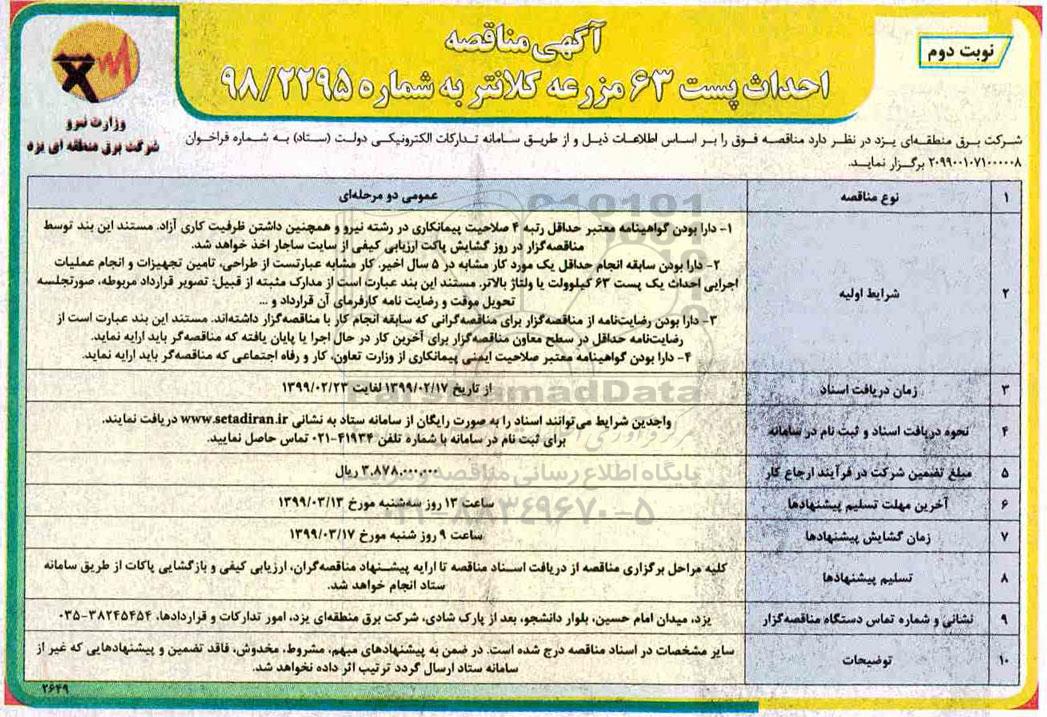 نوبت دوم
آگهی مناقصه
احداث پست ۶۳ مزرعه کلانتر به شماره ۹۸/۲۲۹۵
وزارت نیرو
شرکت برق منطقه ای یزد
شرکت برق منطقه‌ای یزد در نظر دارد مناقصه فوق را بر اساس اطلاعات ذیل و از طریق سامانه تدارکات الکترونیکی دولت (ستاد) به شماره فراخوان
۲۰۹۹۰۰۱۰۷۱۰۰۰۰۰۸ برگزار نماید.
۱ نوع مناقصه عمومی دو مرحله‌ای
۲ شرایط اولیه
۱- دارا بودن گواهینامه معتبر حداقل رتبه ۴ صلاحیت پیمانکاری در رشته نیرو و همچنین داشتن ظرفیت کاری آزاد. مستند این بند توسط
مناقصه‌گزار در روز گشایش پاکت ارزیابی کیفی از سایت ساجار اخذ خواهد شد.
۲- دارا بودن سابقه انجام حداقل یک مورد کار مشابه در ۵ سال اخیر. کار مشابه عبارتست از طراحی، تامین تجهیزات و انجام عملیات
اجرایی احداث یک پست ۶۳ کیلوولت یا ولتاژ بالاتر. مستند این بند عبارت است از مدارک مثبته از قبیل: تصویر قرارداد مربوطه، صورتجلسه
تحویل موقت و رضایت نامه کارفرمای آن قرارداد و ...
۳- دارا بودن رضایت‌نامه از مناقصه‌گزار برای مناقصه‌گرانی که سابقه انجام کار با مناقصه‌گزار داشته‌اند. مستند این بند عبارت است از
رضایت‌نامه حداقل در سطح معاون مناقصه‌گزار برای آخرین کار در حال اجرا یا پایان یافته که مناقصه‌گر باید ارایه نماید.
۴- دارا بودن گواهینامه معتبر صلاحیت ایمنی پیمانکاری از وزارت تعاون، کار و رفاه اجتماعی که مناقصه‌گر باید ارایه نماید.
۳ زمان دریافت اسناد از تاریخ ۱۳۹۹/۰۲/۱۷ لغایت ۱۳۹۹/۰۲/۲۳
۴ نحوه دریافت اسناد و ثبت نام در سامانه
واجدین شرایط می‌توانند اسناد را به صورت رایگان از سامانه ستاد به نشانی www.setadiran.ir دریافت نمایند.
برای ثبت نام در سامانه با شماره تلفن ۴۱۹۳۴-۰۲۱ تماس حاصل نمایید.
۵ مبلغ تضمین شرکت در فرآیند ارجاع کار ۳.۸۷۸.۰۰۰.۰۰۰ ریال
۶ آخرین مهلت تسلیم پیشنهادها ساعت ۱۳ روز سه‌شنبه مورخ ۱۳۹۹/۰۳/۱۳
۷ زمان گشایش پیشنهادها ساعت ۹ روز شنبه مورخ ۱۳۹۹/۰۳/۱۷
۸ تسلیم پیشنهادها
کلیه مراحل برگزاری مناقصه از دریافت اسناد مناقصه تا ارایه پیشنهاد مناقصه‌گران، ارزیابی کیفی و بازگشایی پاکات از طریق سامانه
ستاد انجام خواهد شد.
۹ نشانی و شماره تماس دستگاه مناقصه‌گزار یزد، میدان امام حسین، بلوار دانشجو، بعد از پارک شادی، شرکت برق منطقه‌ای یزد، امور تدارکات و قراردادها، ۳۸۲۴۵۴۵۴-۰۳۵
۱۰ توضیحات
سایر مشخصات در اسناد مناقصه درج شده است. در ضمن به پیشنهادهای مبهم، مشروط، مخدوش، فاقد تضمین و پیشنهادهایی که غیر از
سامانه ستاد ارسال گردد ترتیب اثر داده نخواهد شد.
۲۶۴۹
ParsNamadData
پایگاه اطلاع رسانی مناقصه و مزایده
۰۲۱-۸۸۳۴۹۶۷۰-۵